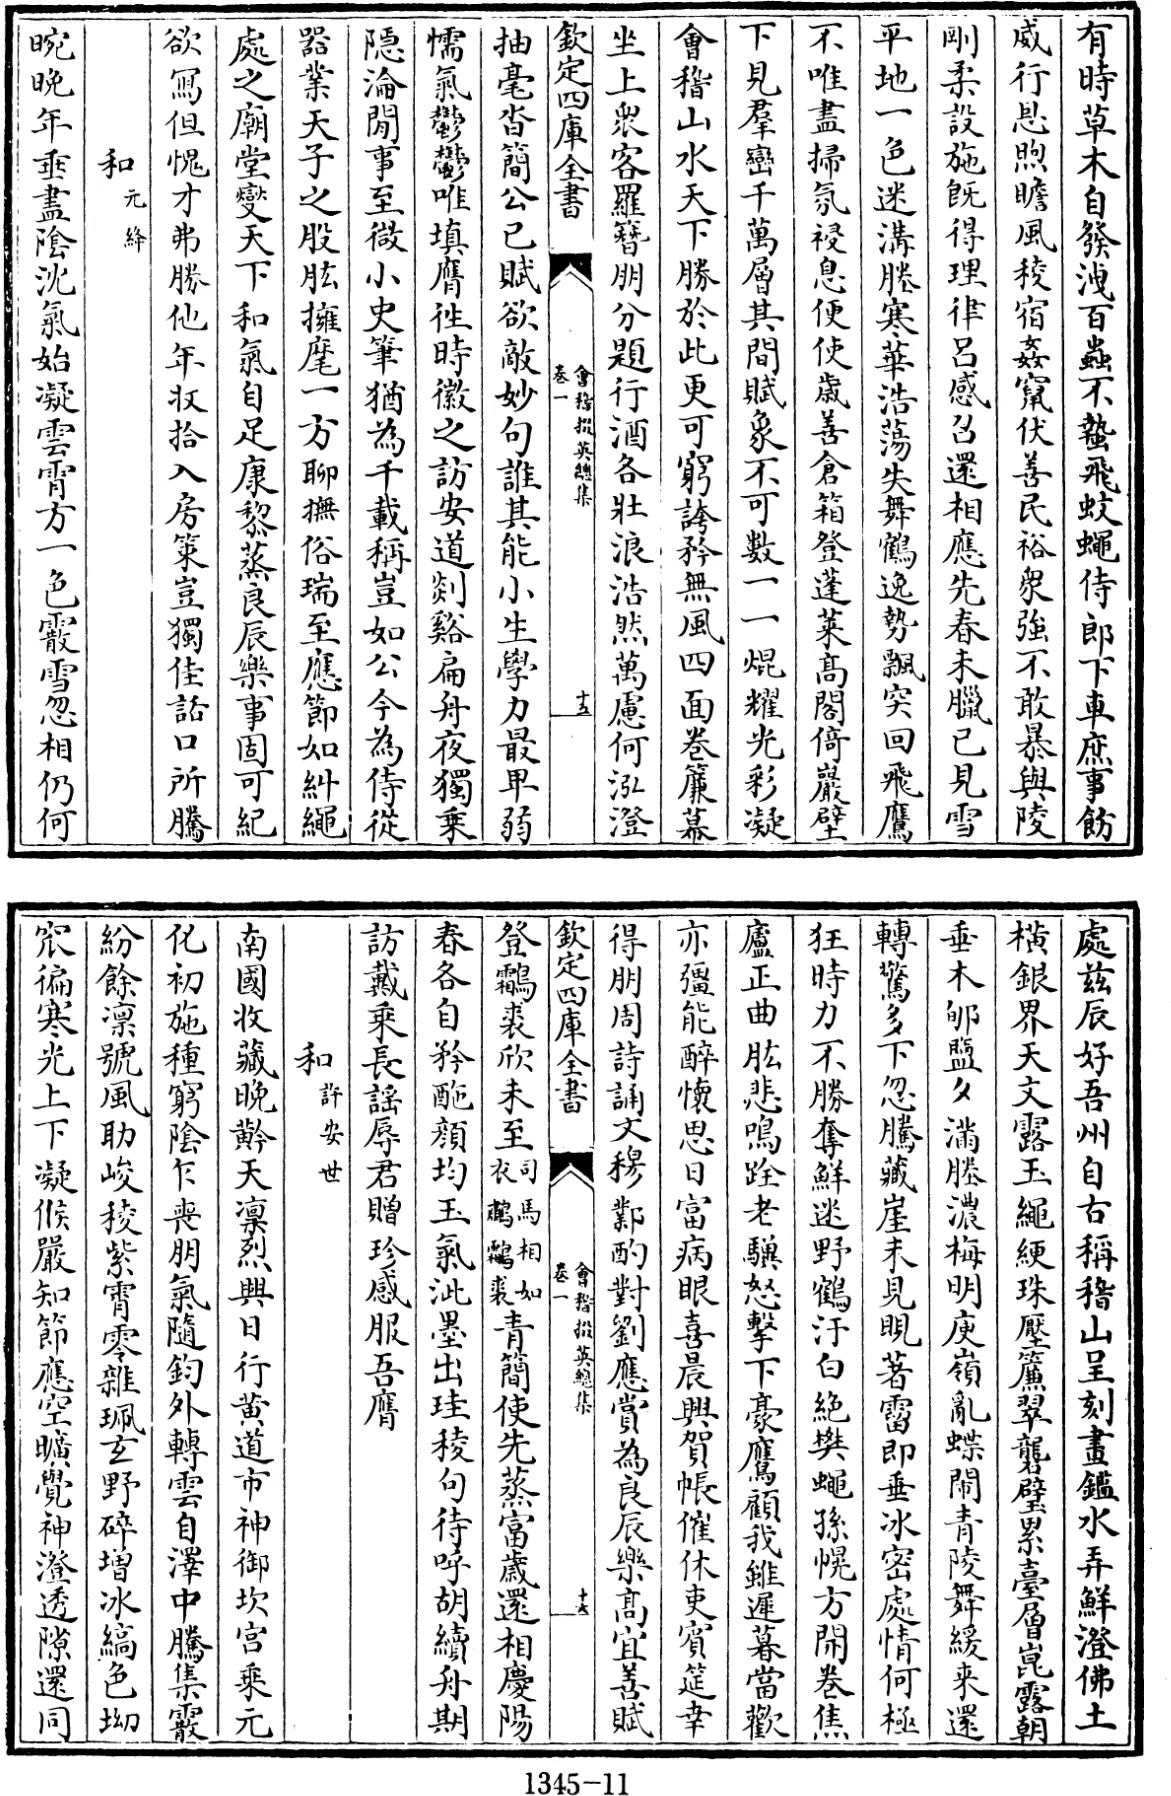 有時草木自發洩百蟲不蟄飛蚊蠅侍郎下車庶事飭
威行恩煦瞻風稜宿姦竄伏善民裕衆強不敢暴與陵
剛柔設施旣得理律呂感召還相應先春未臘已見雪
平地一色迷溝塍寒華浩蕩失舞鶴逸勢飄突回飛鷹
不唯盡掃氛祲息便使歲善倉箱登蓬萊高閣倚巖壁
下見羣巒千萬層其間賦象不可數一一焜耀光彩凝
會稽山水天下勝於此更可窮誇矜無風四面卷簾幕
坐上衆客羅簪朋分題行酒各壯浪浩然萬慮何泓澄
欽定四庫全書
會稽掇英總集
卷一
十五
抽毫沓簡公已賦欲敵妙句誰其能小生學力最卑弱
懦氣鬱鬱唯填膺徃時徽之訪安道剡谿扁舟夜獨乗
隠淪閒事至微小史筆猶為千載稱豈如公今為侍從
器業天子之股肱擁麾一方聊撫俗瑞至應節如糾繩
處之廟堂變天下和氣自足康黎蒸良辰樂事固可紀
欲冩但愧才弗勝他年收拾入房策豈獨佳話口所騰
和元絳
晼晚年垂盡陰沈氣始凝雲霄方一色霰雪忽相仍何
處兹辰好吾州自古稱稽山呈刻畫鑑水弄鮮澄佛土
橫銀界天文露玉繩綆珠壓簾翠鬐璧累臺層崑露朝
垂木郇鹽夕滿塍濃梅明庾嶺亂蝶閙青陵舞緩来還
轉驚多下忽騰藏崖未見晛著霤即垂冰密處情何極
狂時力不勝奪鮮迷野鶴汙白絶樊蠅孫幌方開卷焦
廬正曲肱悲鳴跧老驥怒擊下豪鷹顧我雖遲暮當歡
亦彊能醉懷思日富病眼喜晨興賀帳催休吏賓筵幸
得朋周詩誦文穆鄴酌對劉應賞為良辰樂高宜善賦
欽定四庫全書
會稽掇英總集
卷一
十六
登鸘裘欣未至司馬相如衣鷫鸘裘青簡使先蒸富歲還相慶陽
春各自矜酡顔均玉氣泚墨出珪稜句待呼胡續舟期
訪戴乗長謡辱君贈珍感服吾膺
和許安世
南國收藏晚黅天凛烈興日行黄道市神御坎宫乗元
化初施種窮陰乍喪朋氣隨鈞外轉雲自澤中騰集霰
紛餘凛號風助峻稜紫霄零雜珮玄野碎增冰縞色坳
窊徧寒光上下凝候嚴知節應空曠覺神澄透隙還同
1345-11